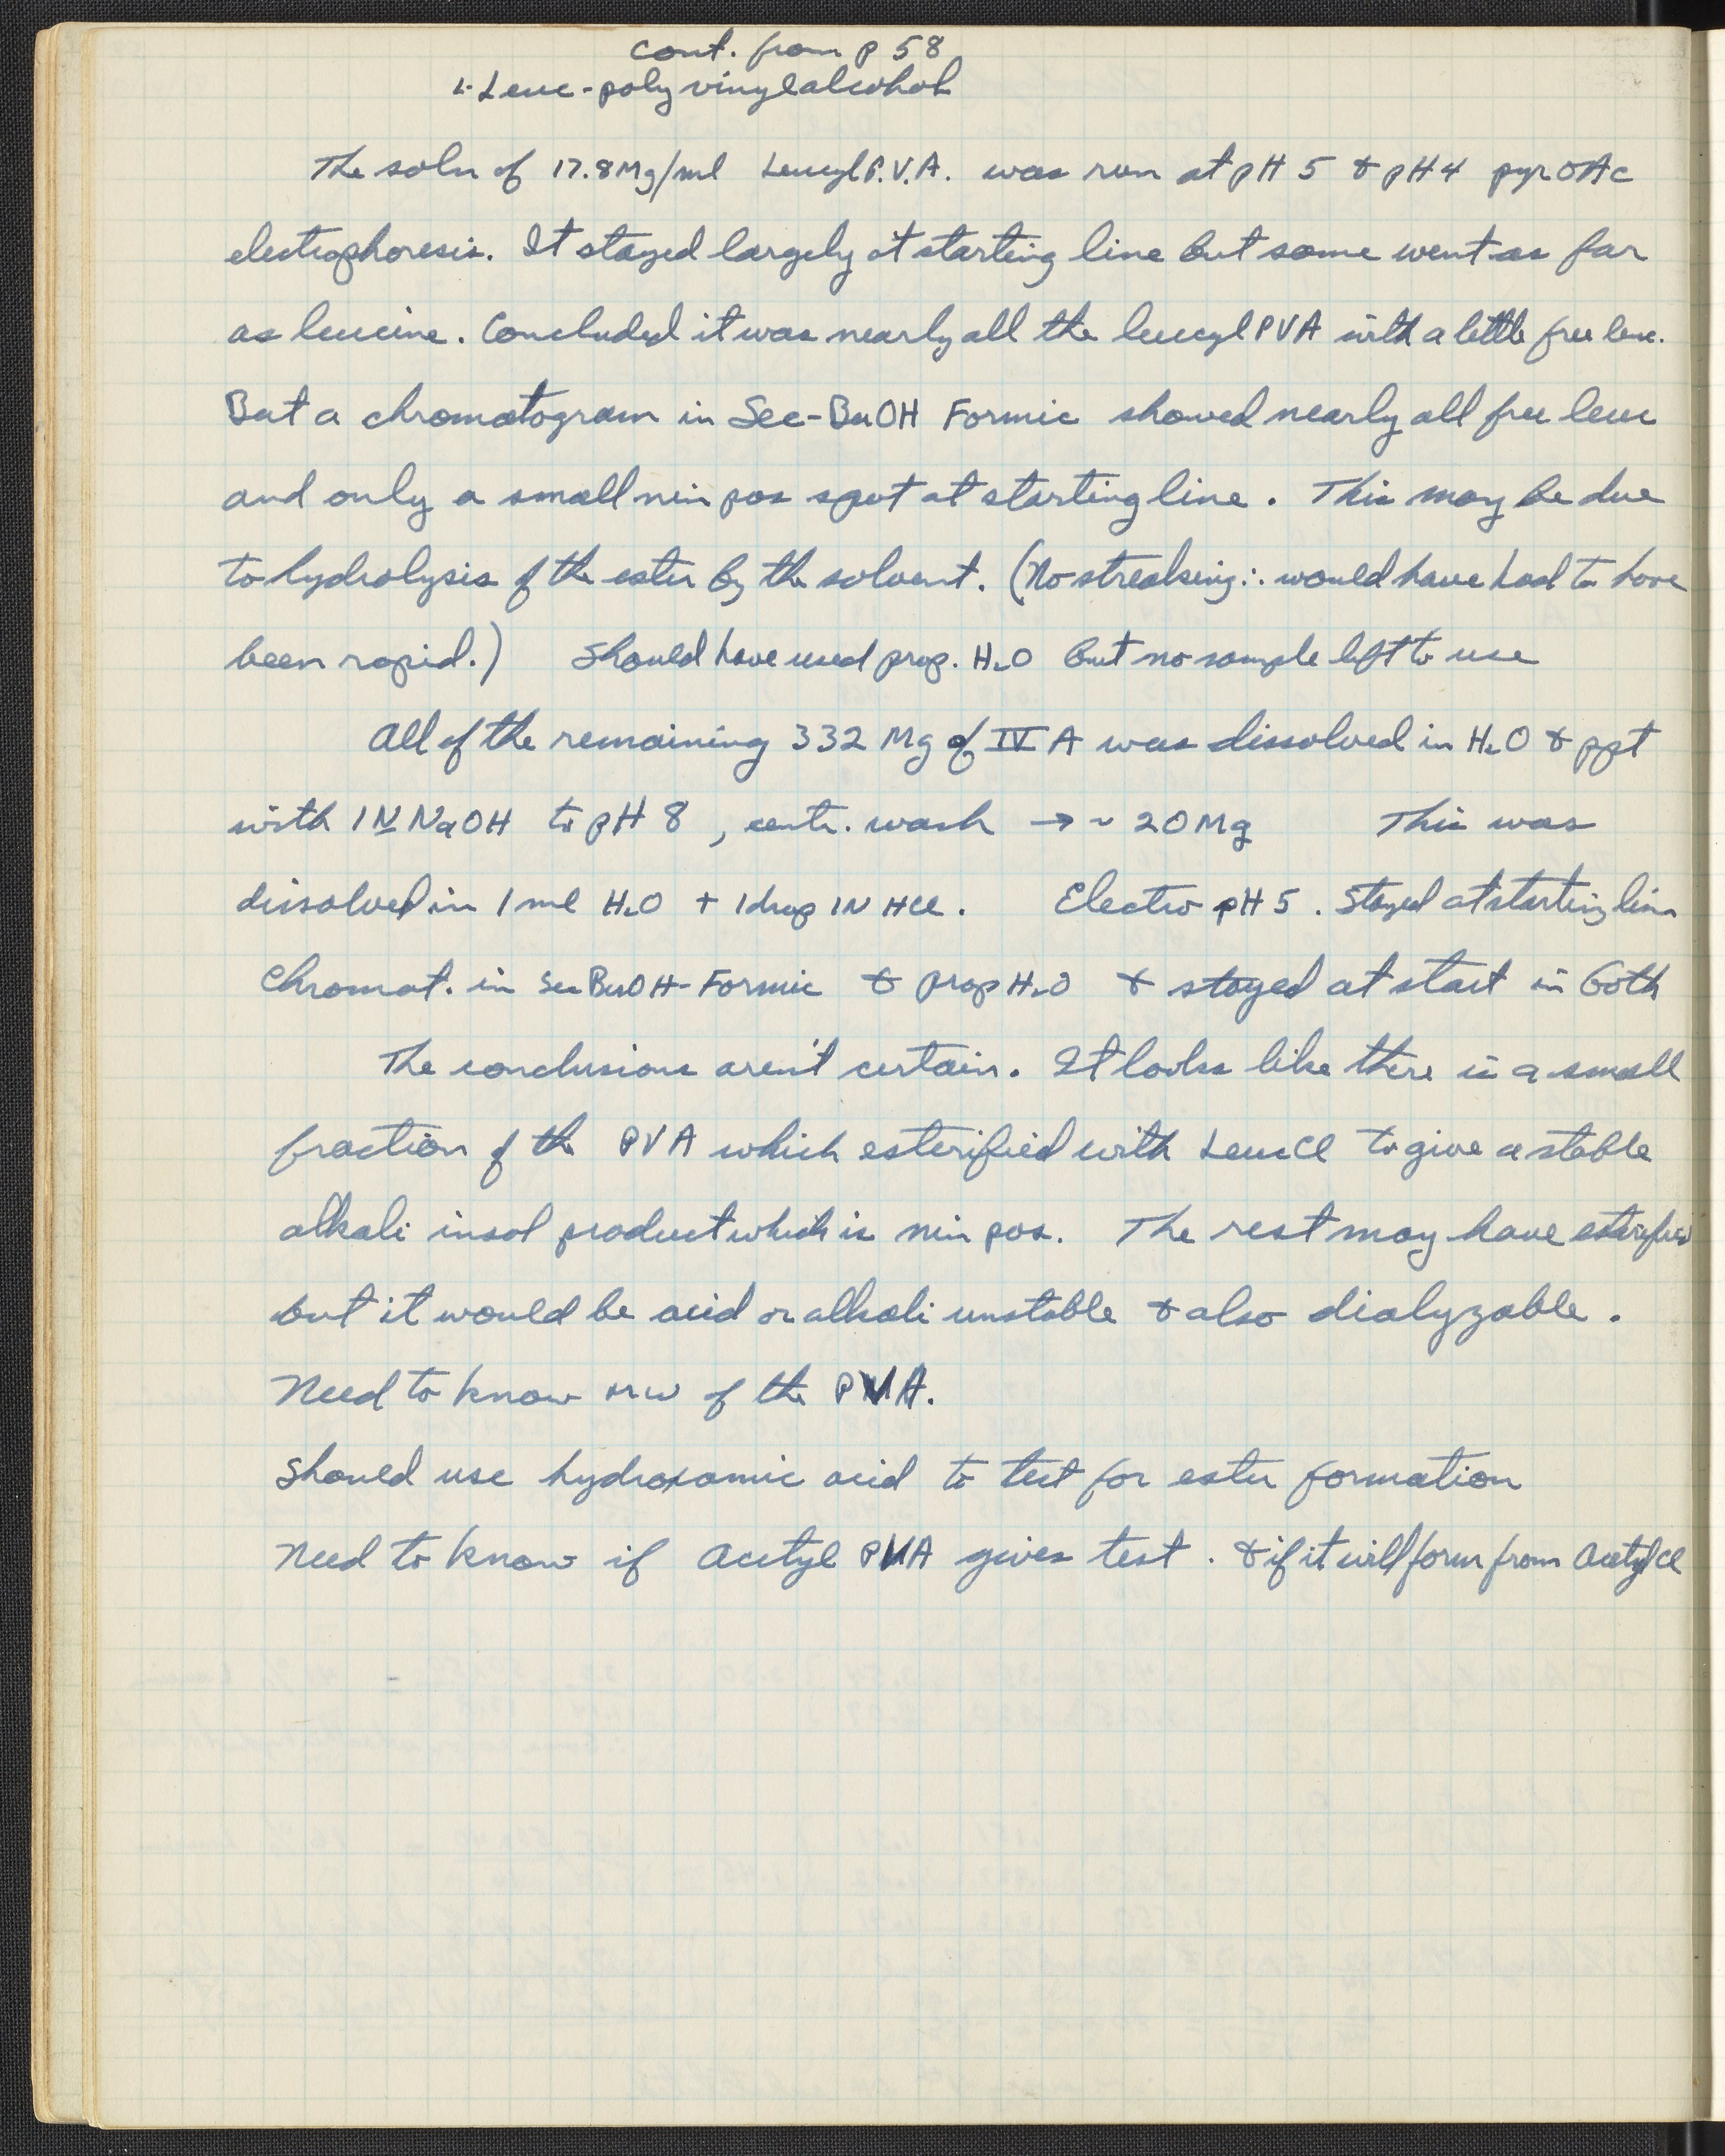 Cont. from p 58
L-Leuc-polyvinylalcohol
The soln of 17.8 Mg/ml Leucyl P.V.A. was run at pH 5 & pH 4 pyr OAc
electrophoresis. It stayed largely at starting line but some went as far
as leucine. Concluded it was nearly all the leucyl PVA with a little free leu.
But a chromatogram in Sec-BuOH Formic showed nearly all free leuc
and only a small nin pos spot at starting line. This may be due
to hydrolysis of the ester by the solvent. (No streaking ∴ would have had to have
been rapid.) Should have used prop. H2O but no sample left to use
All of the remaining 332 Mg of IV A was dissolved in H2O & ppt
with 1 N NaOH to pH 8, centr. wash → ~ 20 Mg This was
dissolved in 1 ml H2O + 1 drop 1N HCl. Electro pH 5. Stayed at starting line
Chromat. in Sec BuOH-Formic & prop H2O & stayed at start in both
The conclusions aren't certain. It looks like there is a small
fraction of the PVA which esterified with LeuCl to give a stable
alkali insol product which is nin pos. The rest may have esterified
but it would be acid or alkali unstable & also dialyzable.
Need to know mw of the PVA.
Should use hydroxamic acid to test for ester formation
Need to know if Acetyl PVA gives test. & if it will form from Acetyl Cl